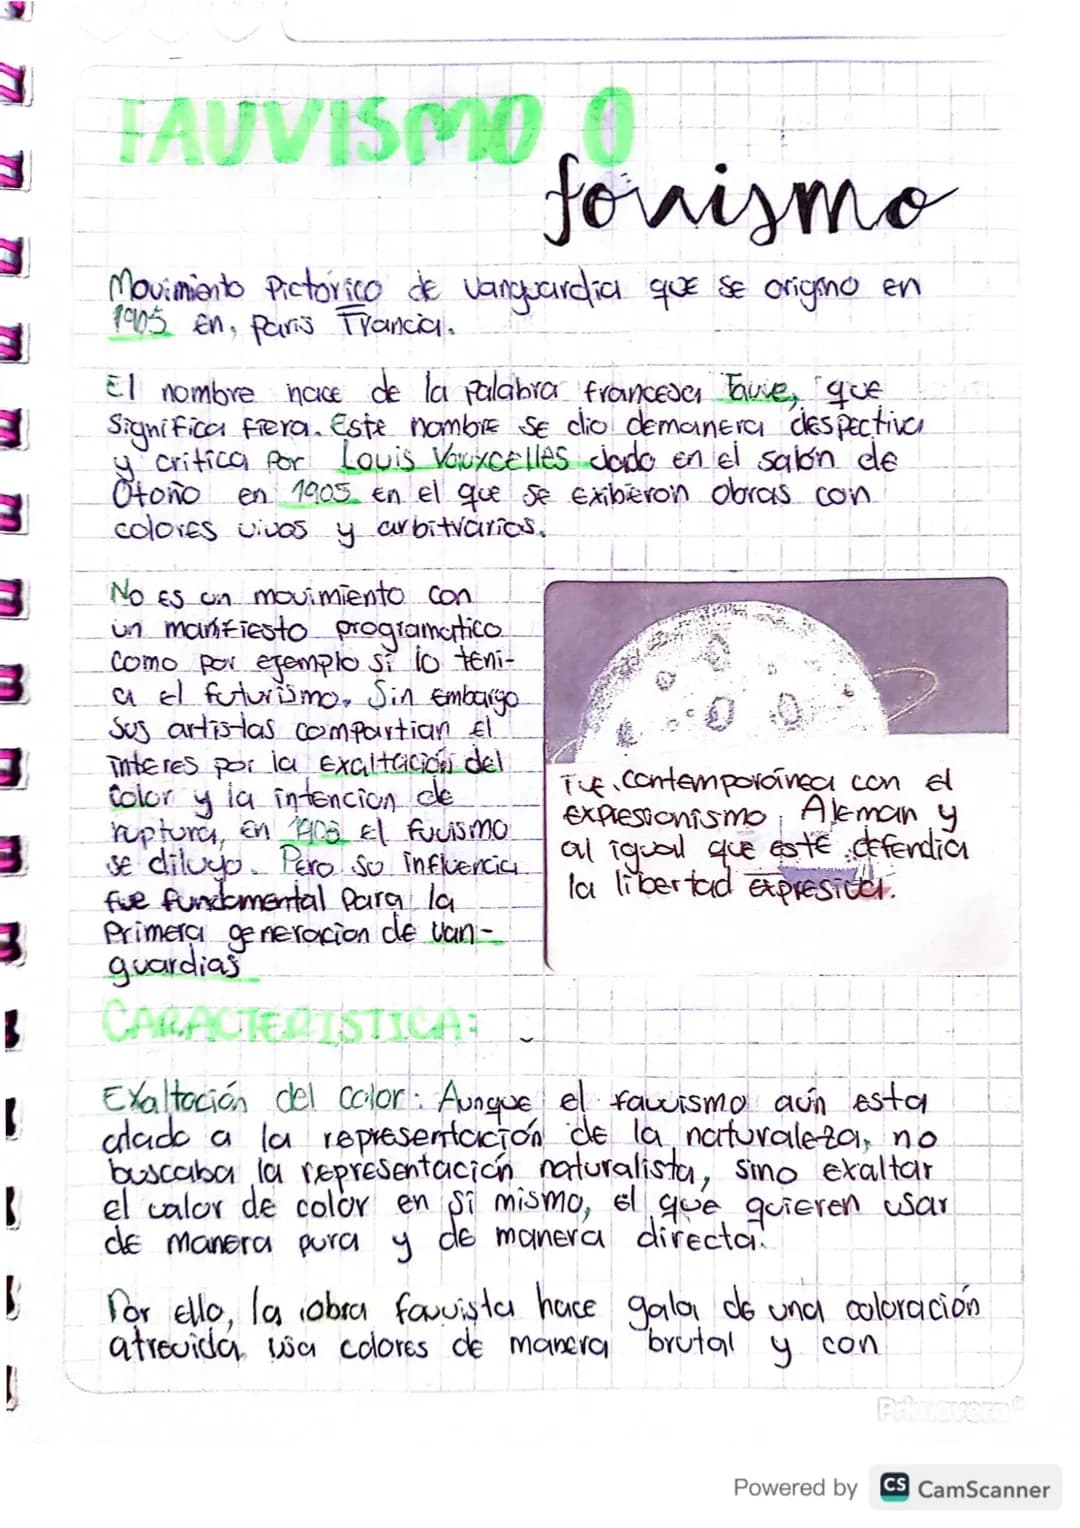 FAUVISMO O
fovismo
Movimiento Pictórico de vanguardia que se origino en
1905 en, paris Francia.
El nombre nace de la palabra francesa Fauve, que
significa fiera. Este nombre se dio demanera despectiva
y critica por Louis Vauxcelles dado en el salón de
Otoño en 1905 en el que se exibieron obras con
colores vivos y arbitrarios.
No es un movimiento con
un manifiesto programatico
como por ejemplo si lo teni-
a el futurismo. Sin embargo
sus artistas compartian el
interes por la exaltación del
color y la intencion de
ruptura, en 1908 el fuvismo
se diluyo. Pero su influencia
fue fundamental para la
primera generacion de van-
guardias
Fue contemporánea con el
expresionismo Aleman y
al igual que este defendia
la libertad expresiva.
CARACTERISTICA:
Exaltación del color: Aunque el fauvismo aún esta
atado a la representación de la naturaleza, no
buscaba la representación naturalista, sino exaltar
el valor de color en sí mismo, el que quieren usar
de manera pura y de manera directa.
Por ello, la obra fauvista hace gala de una coloración
atrevida, usa colores de manera brutal y con
Primavera
Powered by CS CamScanner